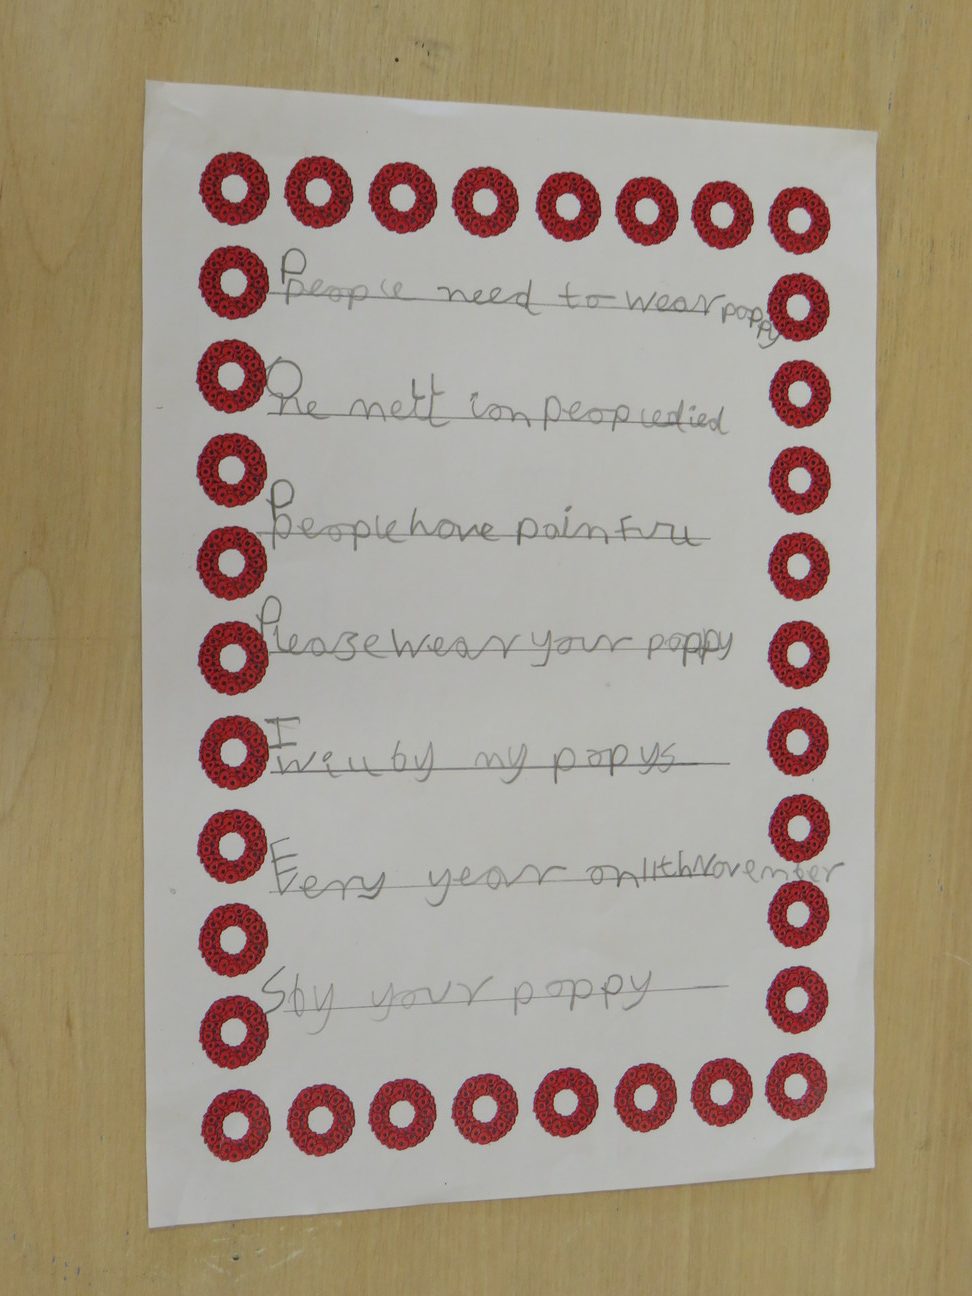 People need to wear poppy
One mett ion people died
People have pain full
Please wear your poppy
I will by my popys
Every year on 11th November
Sby your poppy